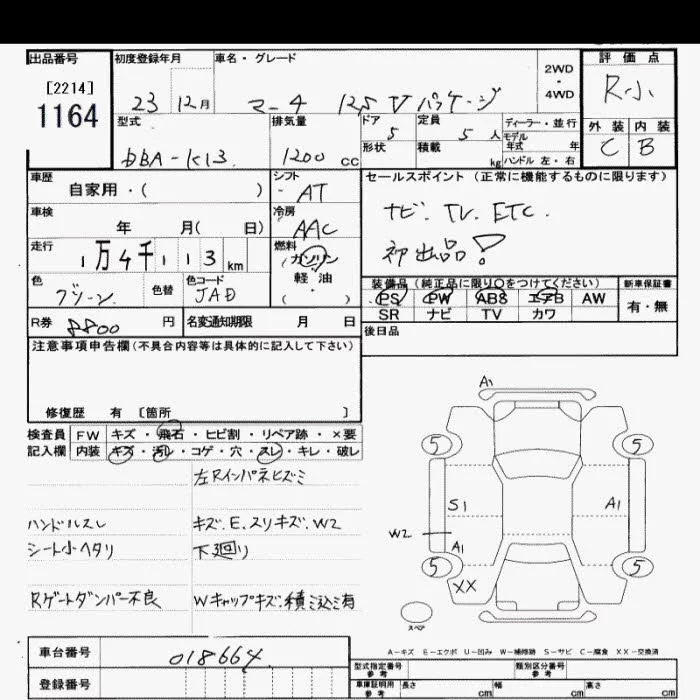 出品番号 初度登録年月 車名・グレード 2WD・4WD 評価点
[2214]
1164
23 12月 マーチ 12S Vパッケージ R小
型式 排気量 ドア 定員 ディーラー・並行 外装 内装
DBA-K13 1200 cc 5 5 人 モデル年式 年 C B
形状 積載 kg ハンドル 左・右
車歴 シフト セールスポイント (正常に機能するものに限ります)
自家用・( ) AT
車検 冷房 ナビ. TV. ETC.
年 月( 日) AAC
初出品!
走行 燃料
1万4千113km ガソリン
軽油
( ・ )
色 色替 色コード 装備品(純正品に限り○をつけてください) 新車保証書
グリーン JAD PS PW ABS エアB AW 有・無
SR ナビ TV カワ
R券 8800 円 名変通知期限 月 日 後日品
注意事項申告欄(不具合内容等は具体的に記入して下さい)
修復歴 有 〔箇所 〕
検査員 FW キズ・飛石・ヒビ割・リペア跡・×要
記入欄 内装 キズ・汚レ・コゲ・穴・スレ・キレ・破レ
左Rインパネヒズミ
ハンドルスレ キズ.E.スリキズ.W2
シート小ヘタリ 下廻り
Rゲートダンパー不良 Wキャップキズ.積ミ込ミ有
A1
5 5
S1 A1
W2 A1
5 5
XX
スペア
A-キズ E-エクボ U-凹み W-補修跡 S-サビ C-腐食 XX-交換済
車台番号 018664 型式指定番号 参考 類別区分番号 参考
登録番号 車庫証明用 参考 長さ cm 幅 cm 高さ cm